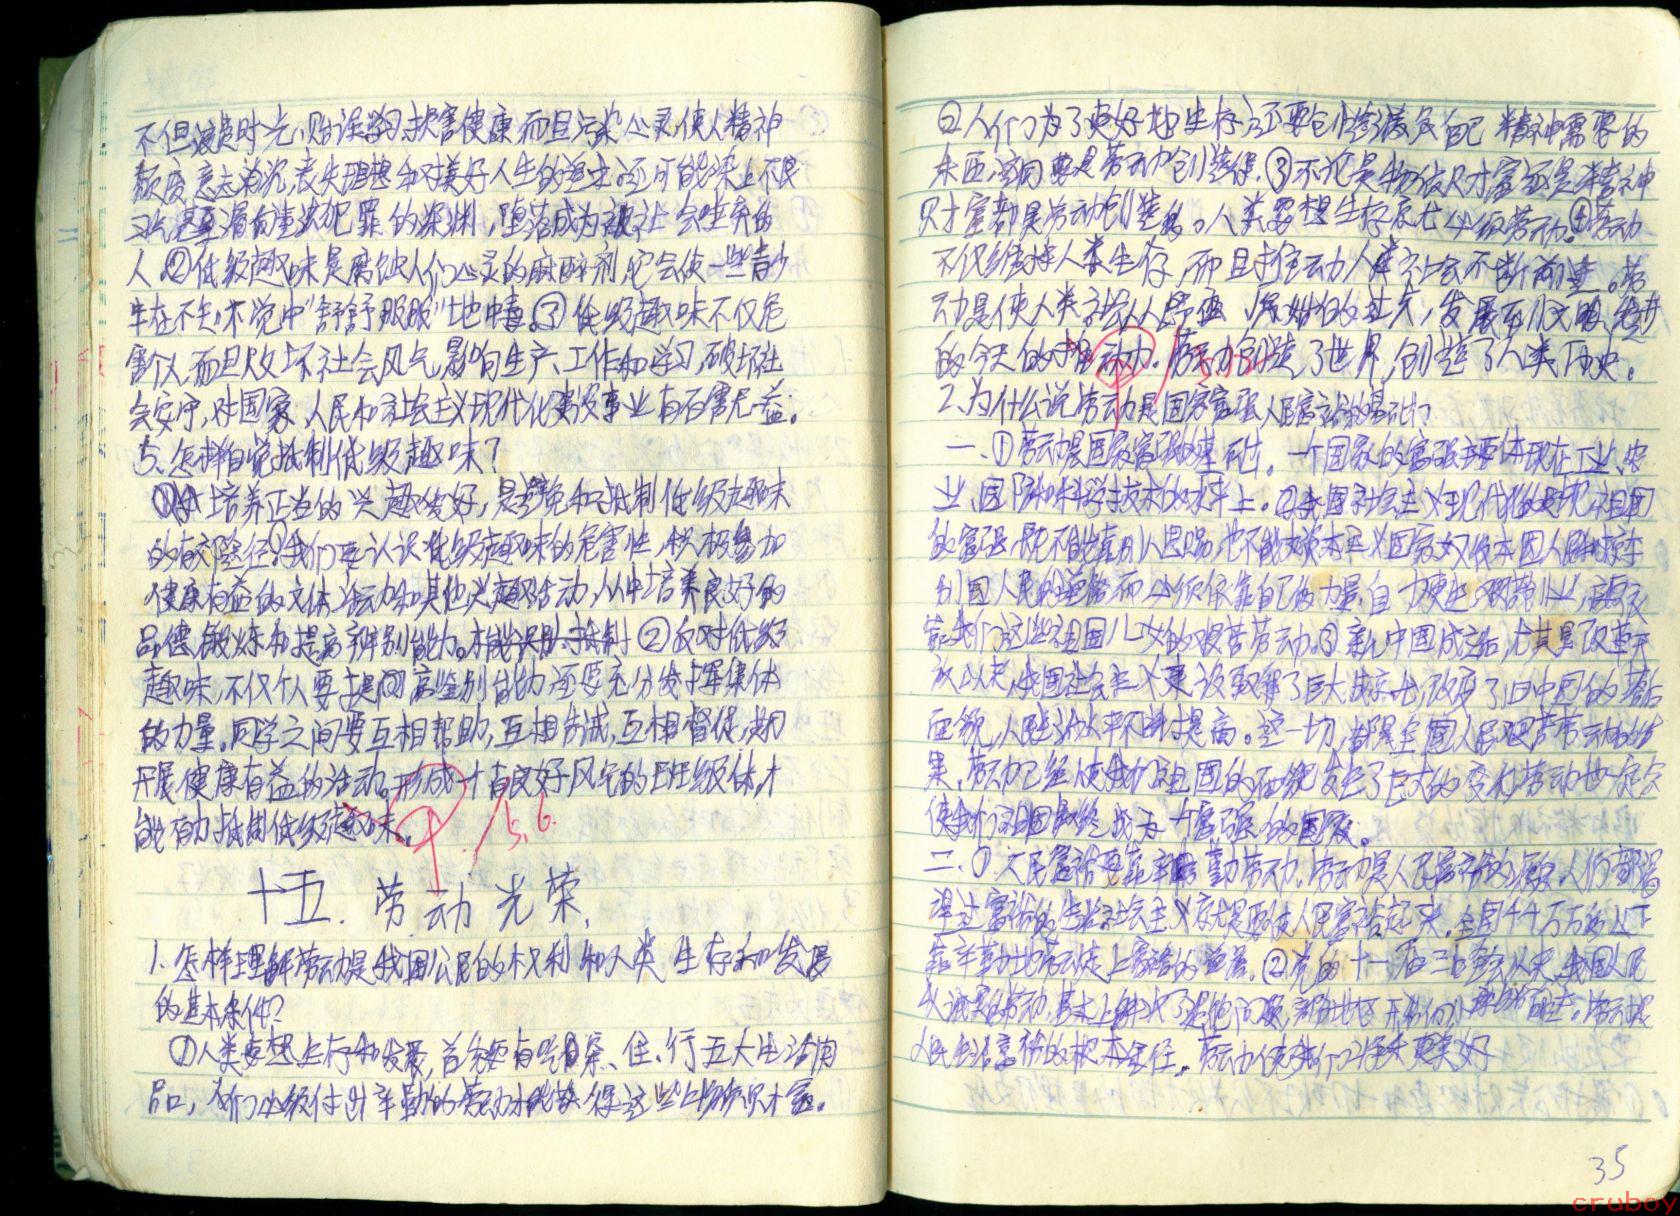 不但浪费时光,贻误学习,损害健康,而且污染心灵,使人精神
颓废,意志消沉,丧失理想和对美好人生的追求,还可能染上不良
习气,甚至滑有违法犯罪的深渊,堕落成为被社会唾弃的
人。②低级趣味是腐蚀人们心灵的麻醉剂,它会使一些青少
年在不知不觉中"舒舒服服"地中毒。③低级趣味不仅危
害个人,而且败坏社会风气,影响生产、工作和学习,破坏社
会安宁,对国家、人民和社会主义现代化建设事业有百害无益。
5、怎样自觉抵制低级趣味?
①培养正当的兴趣爱好,是避免和抵制低级趣味
的有效途径。我们要认识低级趣味的危害性,积极参加
健康有益的文体活动和其他兴趣活动,从中培养良好的
品德,锻炼和提高辨别能力。才能自觉抵制②反对低级
趣味,不仅个人要提高鉴别能力,还要充分发挥集体
的力量。同学之间要互相帮助,互相告诫,互相督促,共同
开展健康有益的活动。形成十有良好风气的班级体,才
能有力抵制低级趣味。
5.6.
十五、劳动光荣
1、怎样理解劳动是我国公民的权利和人类生存和发展
的基本条件?
①人类要想生存和发展,首先要有吃、穿、住、行五大生活用
品,人们必须付出辛勤的劳动才能获得这些物质财富。
②人们为了更好地生存,还要创造满足自己精神需要的
东西,这同要是劳动创造得。③不论是物质财富还是精神
财富都是劳动创造的。人类要想生存就必须劳动。④劳动
不仅维持人类生存,而且推动人类社会不断前进。劳
动是使人类社会从原始的起点,发展到文明、先进
的今天的推动力。劳动创造了世界,创造了人类历史。
2、为什么说劳动是国家富强人民富裕的基础?
一、①劳动是国家富强的基石。一个国家的富强主要体现在工业、农
业、国防和科学技术的水平上。②我国社会主义现代化的实现,祖国
的富强,既不能靠别人恩赐,也不能像资本主义国家奴役本国人民和掠夺
别国人民的道路,而必须依靠自己的力量,自力更生,艰苦创业,
靠我们这些祖国儿女的艰苦劳动。③新中国成立后,尤其是改革开
放以来,我国社会主义建设取得了巨大成就,改变了旧中国的落后
面貌,人民生活水平不断提高。这一切,都是全国人民艰苦劳动的结
果,劳动已经使我们祖国的面貌发生了巨大的变化,劳动也一定会
使我们祖国最终成为十富强的国家。
二、①人民富裕要靠辛勤劳动,劳动是人民富裕的源泉。人们都渴
望过富裕的生活,社会主义就是要使人民富裕起来。全国
靠辛勤地劳动走上富裕的道路。②党的十一届三中全会以来,我国人民
以诚实的劳动,基本上解决了温饱问题,部分地区开始向小康生活前进。劳动是
人民生活富裕的根本途径。劳动使我们的生活更美好
35
cruboy